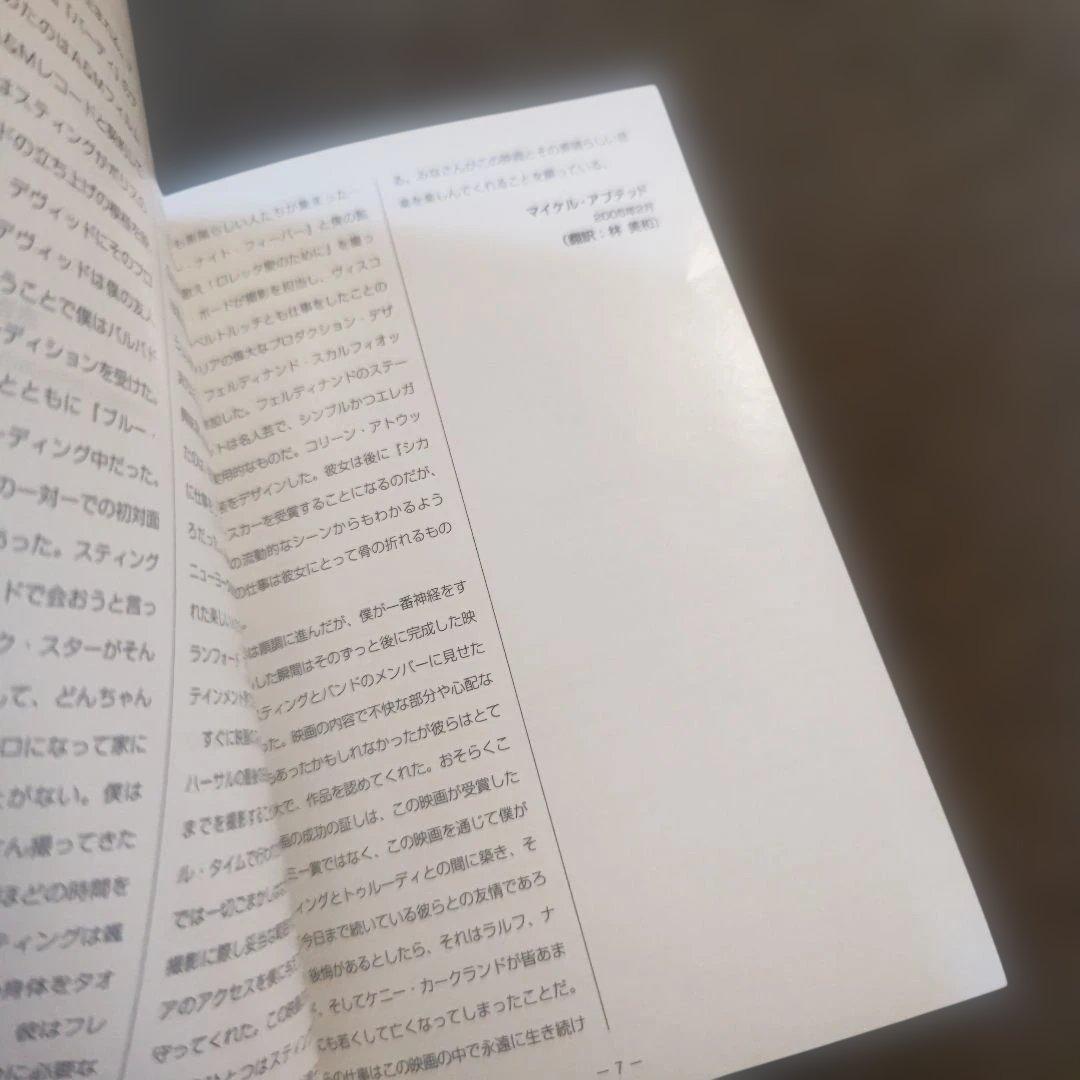 たのはA&Mフィ
&Mレコードと契約
はスティングがポリス
ドの立ち上げの模様を
デヴィッドにそのプロ
デヴィッドは僕の友人
うことで僕はバルバド
ディションを受けた。
とともに『ブルー・
ーディング中だった。
の一対一での初対面
あった。スティング
ドで会おうと言っ
ク・スターがそん
して、どんちゃん
口になって家に
とがない。僕は
さん撮ってきた
ほどの時間を
ティングは裸
身体をタオ
彼はフレ
に必要な
に仕事
ろだった
ニューヨーク
れた楽し
ランフォード
テインメント
すぐに映画
ハーサルの最後の
までを撮影する
ル・タイムで行わ
では一切ごまかし
撮影に際し妥当な
アのアクセスを僕に
守ってくれた。この
ひとつはスティ
も素晴らしい人たちが集まった
ナイト・フィーバー』と僕の監
歌え!ロレッタ愛のために』を撮っ
ボードが撮影を担当し、ヴィスコ
ベルトルッチとも仕事をしたことの
リアの偉大なプロダクション・デザ
フェルディナンド・スカルフィオッ
加した。フェルディナンドのステー
ットは名人芸で、シンプルかつエレガ
実用的なものだ。コリーン・アトウッ
をデザインした。彼女は後に『シカ
スカーを受賞することになるのだが、
の流動的なシーンからもわかるよう
の仕事は彼女にとって骨の折れるもの
は順調に進んだが、僕が一番神経をす
した瞬間はそのずっと後に完成した映
スティングとバンドのメンバーに見せた
った。映画の内容で不快な部分や心配な
あったかもしれなかったが彼らはとて
大で、作品を認めてくれた。おそらくこ
画の成功の証しは、この映画が受賞した
ミー賞ではなく、この映画を通じて僕が
ィングとトゥルーディとの間に築き、そ
今日まで続いている彼らとの友情であろ
後悔があるとしたら、それはラルフ、ナ
、そしてケニー・カークランドが皆あま
にも若くして亡くなってしまったことだ。
の仕事はこの映画の中で永遠に生き続け
る。みなさんがこの映画とその素晴らしい音
楽を楽しんでくれることを願っている。
マイケル・アプテッド
2005年2月
(翻訳:林 美和)
— 7 —